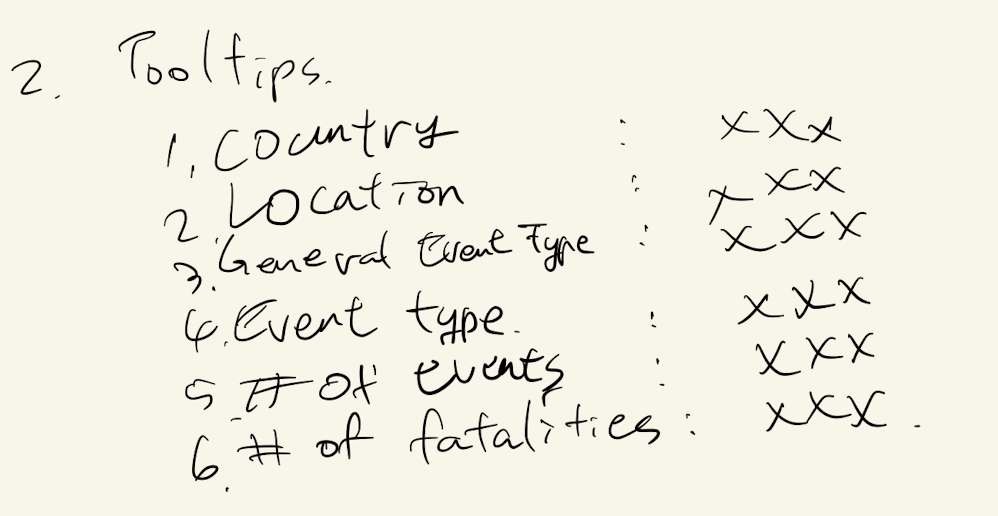 2. Tooltips.
1. Country : xxx
2. Location : xxx
3. General Event Type : xxx
4. Event type. : xxx
5. # of events : xxx
6. # of fatalities : xxx.